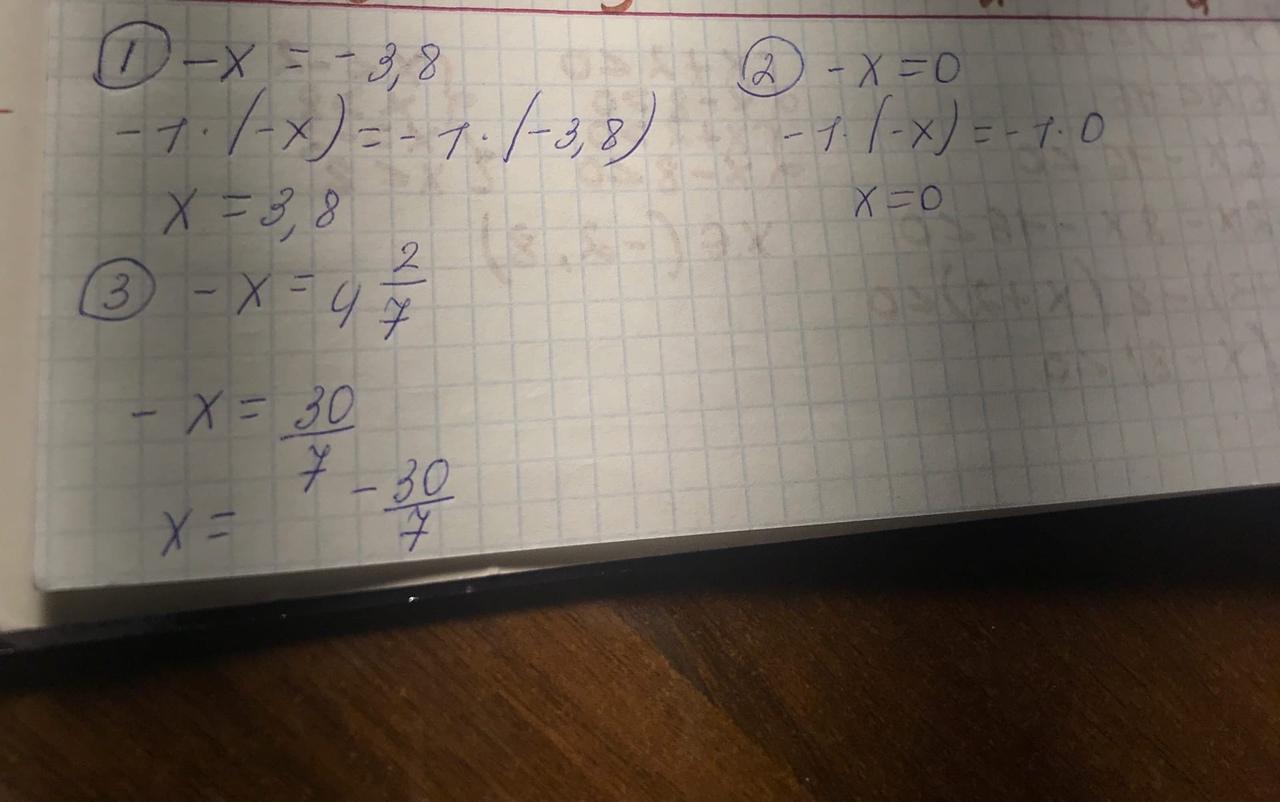 ① -x = -3,8
-1·(-x) = -1·(-3,8)
x = 3,8
② -x = 0
-1·(-x) = -1·0
x = 0
③ -x = 4 2/7
-x = 30/7
x = -30/7